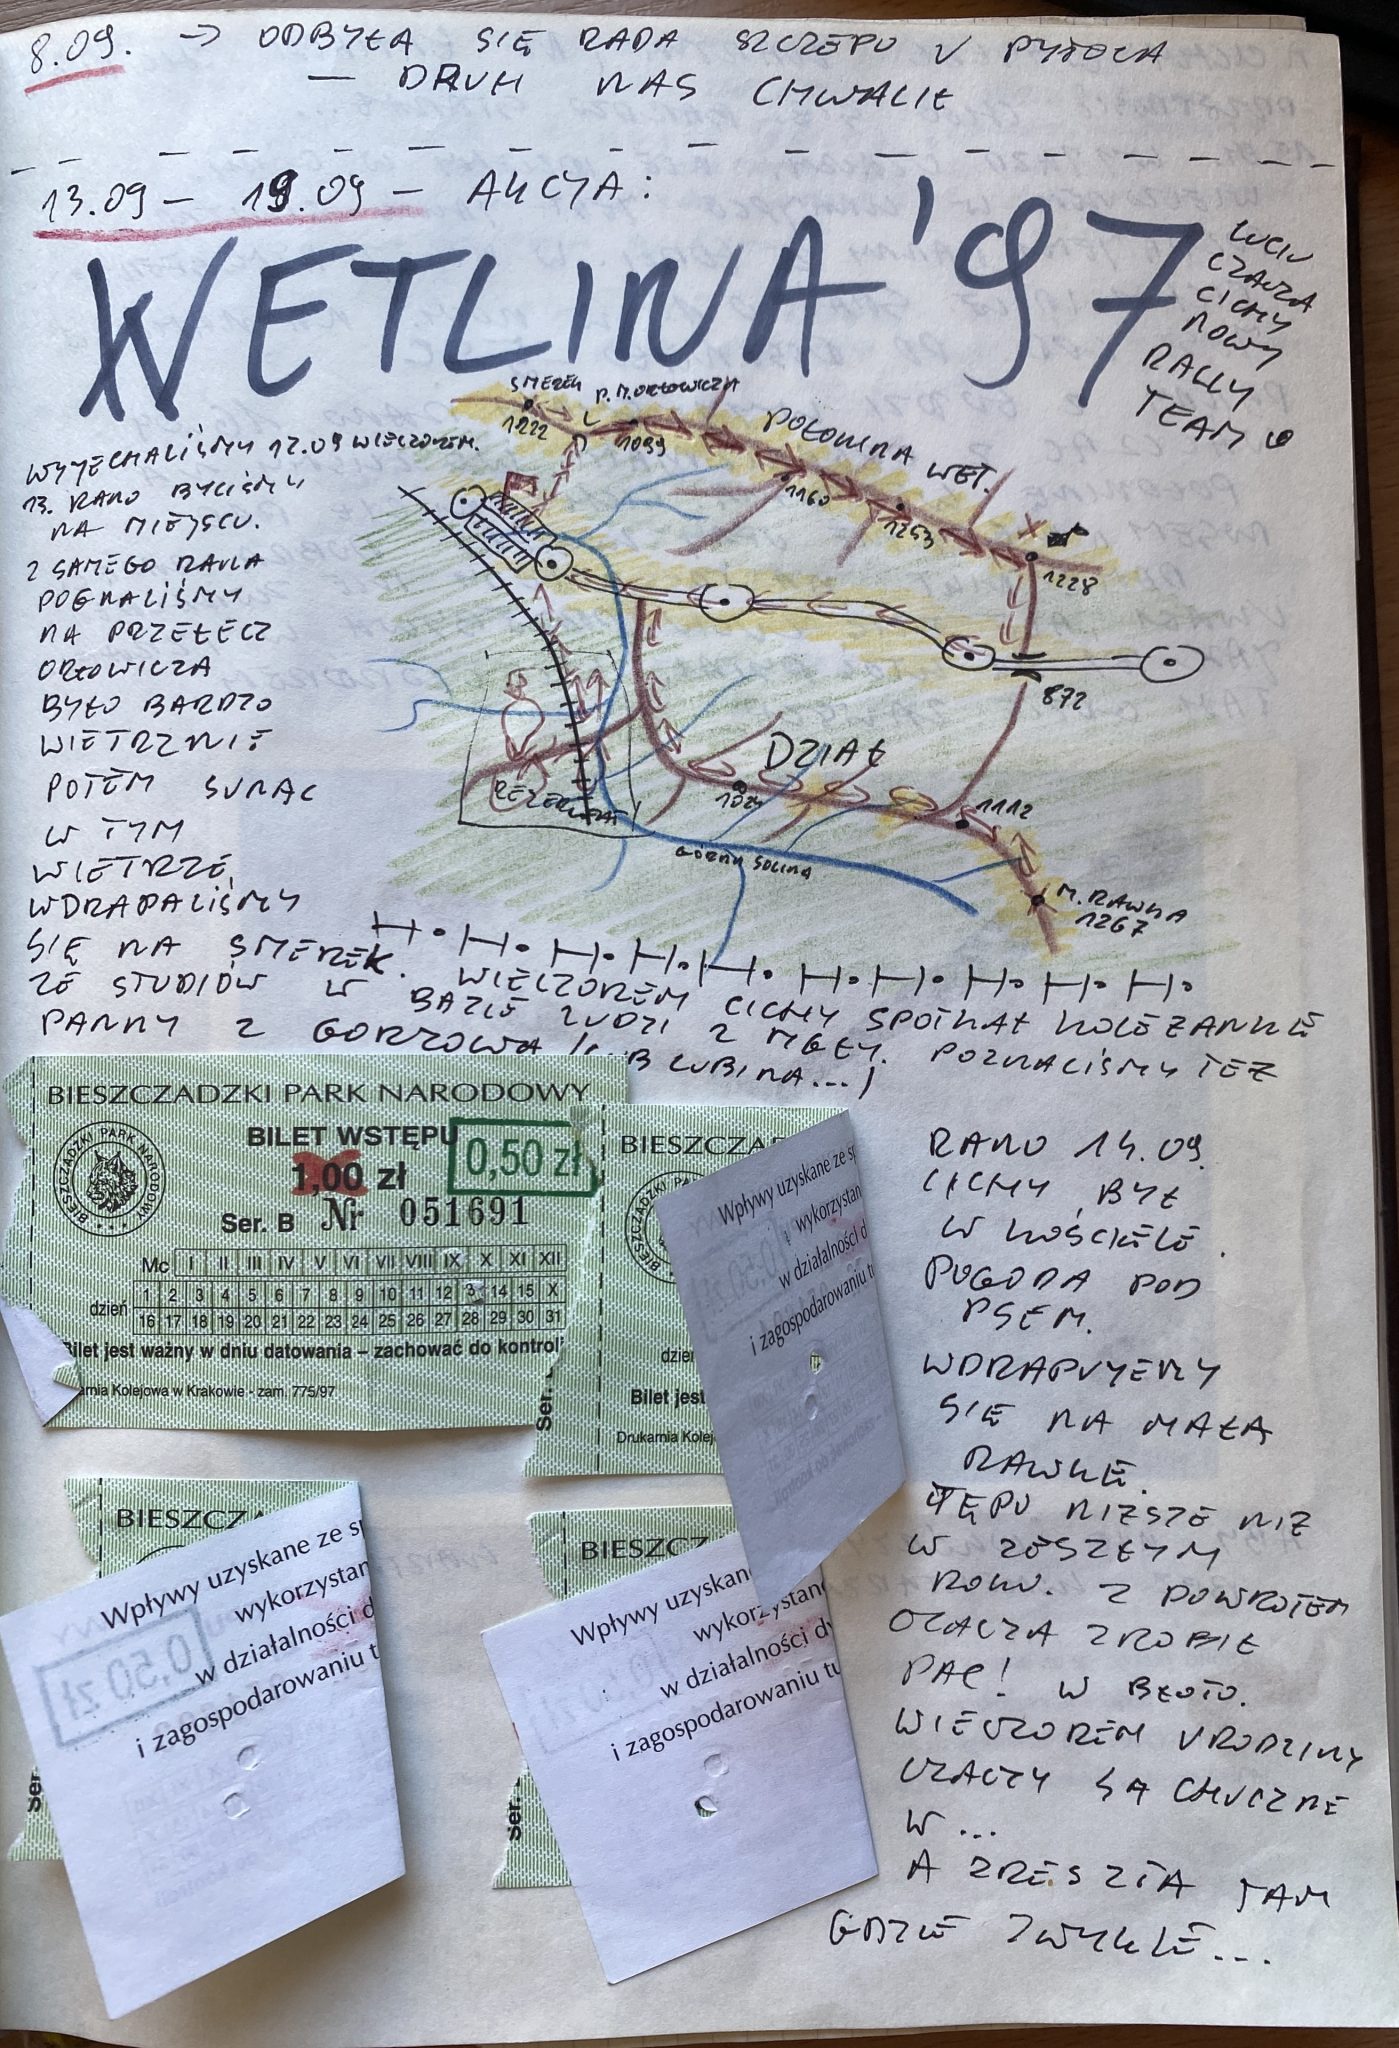 8.09. → ODBYŁA SIĘ RADA SZCZEPU U PYTOLA
— DRUH NAS CHWALIŁ
13.09 – 19.09 – AKCJA:
WETLINA '97
LUCIU
CZACZA
CICHY
NOWY
RALLY
TEAM
SMEREK
1222
P.M. ORŁOWICZA
1099
POŁONINA WET.
1160
1253
1228
872
DZIAŁ
1112
REZERWAT
GÓRNA SOLINA
M. RAWKA
1267
WYJECHALIŚMY 12.09 WIECZOREM.
13. RANO BYLIŚMY
NA MIEJSCU.
Z SAMEGO RANA
POGNALIŚMY
NA PRZEŁĘCZ
ORŁOWICZA
BYŁO BARDZO
WIETRZNIE
POTEM SUNĄC
W TYM
WIETRZE,
WDRAPALIŚMY
SIĘ NA SMEREK. WIECZOREM CICHY SPOTKAŁ KOLEŻANKĘ
ZE STUDIÓW W BAZIE LUDZI Z MGŁY. POZNALIŚMY TEŻ
PANNY Z GORZOWA (LUB LUBINA...)
BIESZCZADZKI PARK NARODOWY
BILET WSTĘPU
1,00 zł
0,50 zł
Ser. B Nr 051691
BIESZCZADZKI PARK NARODOWY
Mc I II III IV V VI VII VIII IX X XI XII
dzień
1 2 3 4 5 6 7 8 9 10 11 12 14 15 X
16 17 18 19 20 21 22 23 24 25 26 27 28 29 30 31
Bilet jest ważny w dniu datowania – zachować do kontrol
arnia Kolejowa w Krakowie - zam. 775/97
BIESZCZA
dzień
Bilet jest
Drukarnia Kolej
Ser.
Wpływy uzyskane ze sp
wykorzystan
w działalności d
i zagospodarowaniu tu
RANO 14.09.
CICHY BYŁ
W KOŚCIELE.
POGODA POD
PSEM.
WDRAPUJEMY
SIĘ NA MAŁĄ
RAWKĘ.
TĘPO NIŻSZE NIŻ
W ZESZŁYM
ROKU. Z POWROTEM
CZACZA ZROBIŁ
PAC! W BŁOTO.
WIECZOREM URODZINY
CZACZY SĄ HUCZNE
W...
A ZRESZTĄ TAM
GDZIE ZWYKLE...
BIESZCZA
Wpływy uzyskane ze sp
wykorzystan
w działalności d
i zagospodarowaniu t
0,50 zł
Ser.
BIESZCZ
Wpływy uzyskan
wykorzystano
w działalności dy
i zagospodarowaniu tu
Ser.